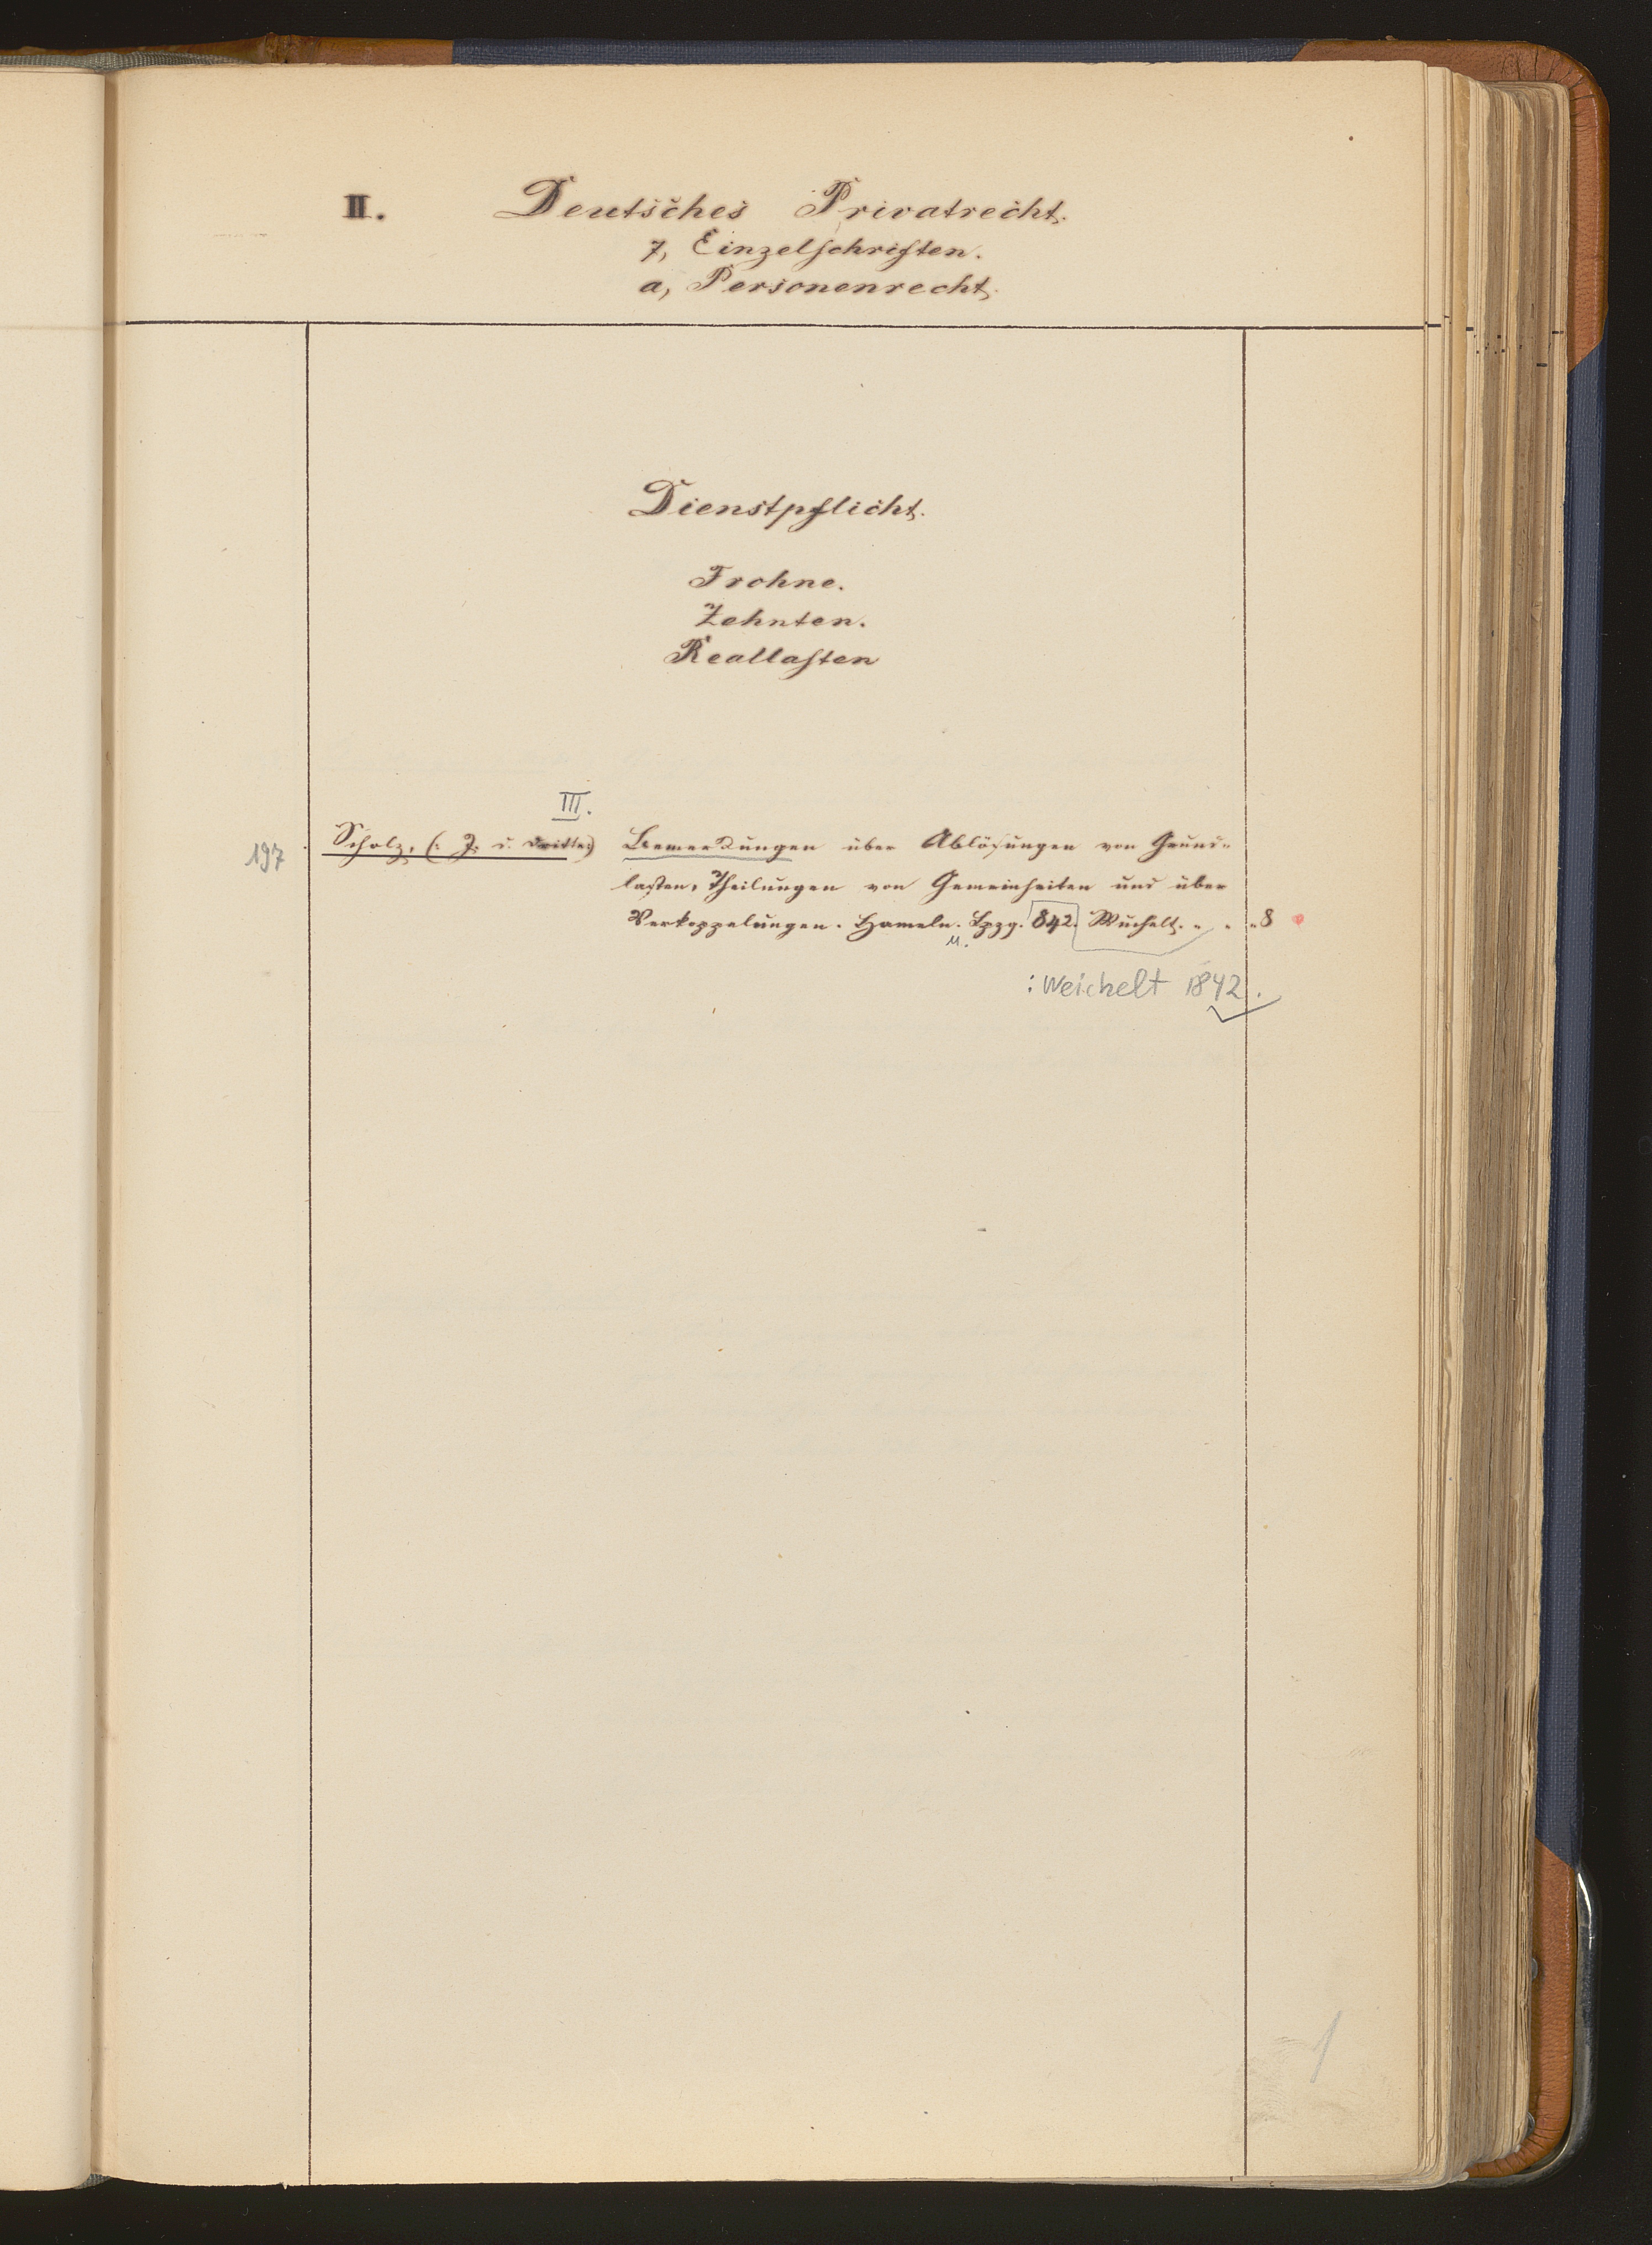 II. Deutsches Privatrecht.
7, Einzelschriften.
a, Personenrecht.
Dienstpflicht.
Frohne.
Zehnten.
Reallasten
III.
197 Scholz, (: J. d. Dritte:) Bemerkungen über Ablösungen von Grund-
lasten, Theilungen von Gemeinheiten und über
Verkoppelungen. Hameln. Lpzg. 842. Wuchelt. " " " 8
u.
: Weichelt 1842.
1